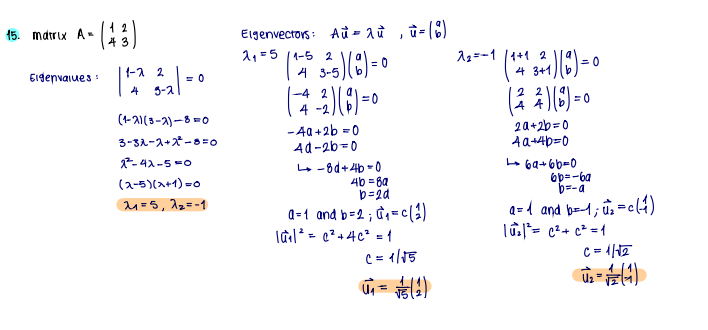 15. matrix A = (1 2 / 4 3)
Eigenvalues: |1-λ 2 / 4 3-λ| = 0
(1-λ)(3-λ)-8=0
3-3λ-λ+λ²-8=0
λ²-4λ-5=0
(λ-5)(λ+1)=0
λ₁=5, λ₂=-1
Eigenvectors: Au⃗ = λu⃗ , u⃗ = (a / b)
λ₁=5 (1-5 2 / 4 3-5)(a / b)=0
(-4 2 / 4 -2)(a / b)=0
-4a+2b=0
4a-2b=0
↳ -8a+4b=0
4b=8a
b=2a
a=1 and b=2; u⃗₁=c(1 / 2)
|u⃗₁|² = c²+4c² = 1
c = 1/√5
u⃗₁ = 1/√5 (1 / 2)
λ₂=-1 (1+1 2 / 4 3+1)(a / b)=0
(2 2 / 4 4)(a / b)=0
2a+2b=0
4a+4b=0
↳ 6a+6b=0
6b=-6a
b=-a
a=1 and b=-1; u⃗₂=c(1 / -1)
|u⃗₂|² = c²+c²=1
c = 1/√2
u⃗₂ = 1/√2 (1 / -1)